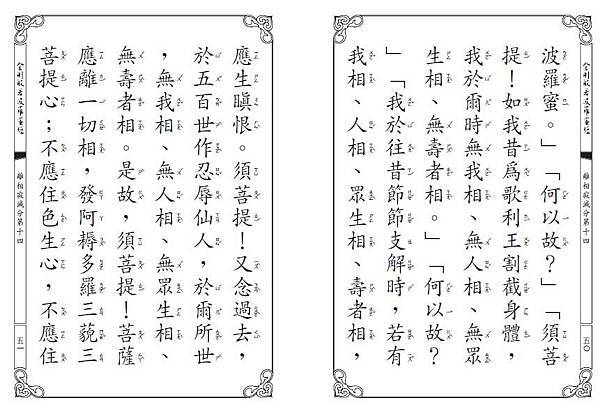 金剛般若波羅蜜經
離相寂滅分第十四
五〇
波羅蜜。」「何以故？」「須菩
提！如我昔為歌利王割截身體，
我於爾時無我相、無人相、無眾
生相、無壽者相。」「何以故？
」「我於往昔節節支解時，若有
我相、人相、眾生相、壽者相，
應生瞋恨。須菩提！又念過去，
於五百世作忍辱仙人，於爾所世
，無我相、無人相、無眾生相、
無壽者相。是故，須菩提！菩薩
應離一切相，發阿耨多羅三藐三
菩提心；不應住色生心，不應住
金剛般若波羅蜜經
離相寂滅分第十四
五一